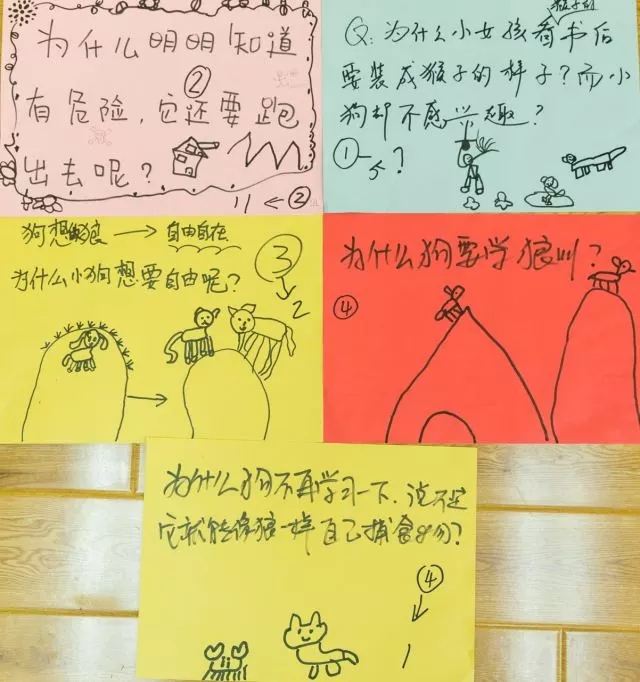 为什么明明知道
②
有危险，它还要跑
出去呢？
11 ← ②
Q: 为什么小女孩看书后
要装成猴子的样子？而小
狗却不感兴趣？
①→ 5 ?
狗想做狼 → 自由自在
为什么小狗想要自由呢？
③
2
为什么狗要学狼叫？
④
为什么狗不再学习一下，说不定
它就能像狼一样自己捕食呢？
④
1